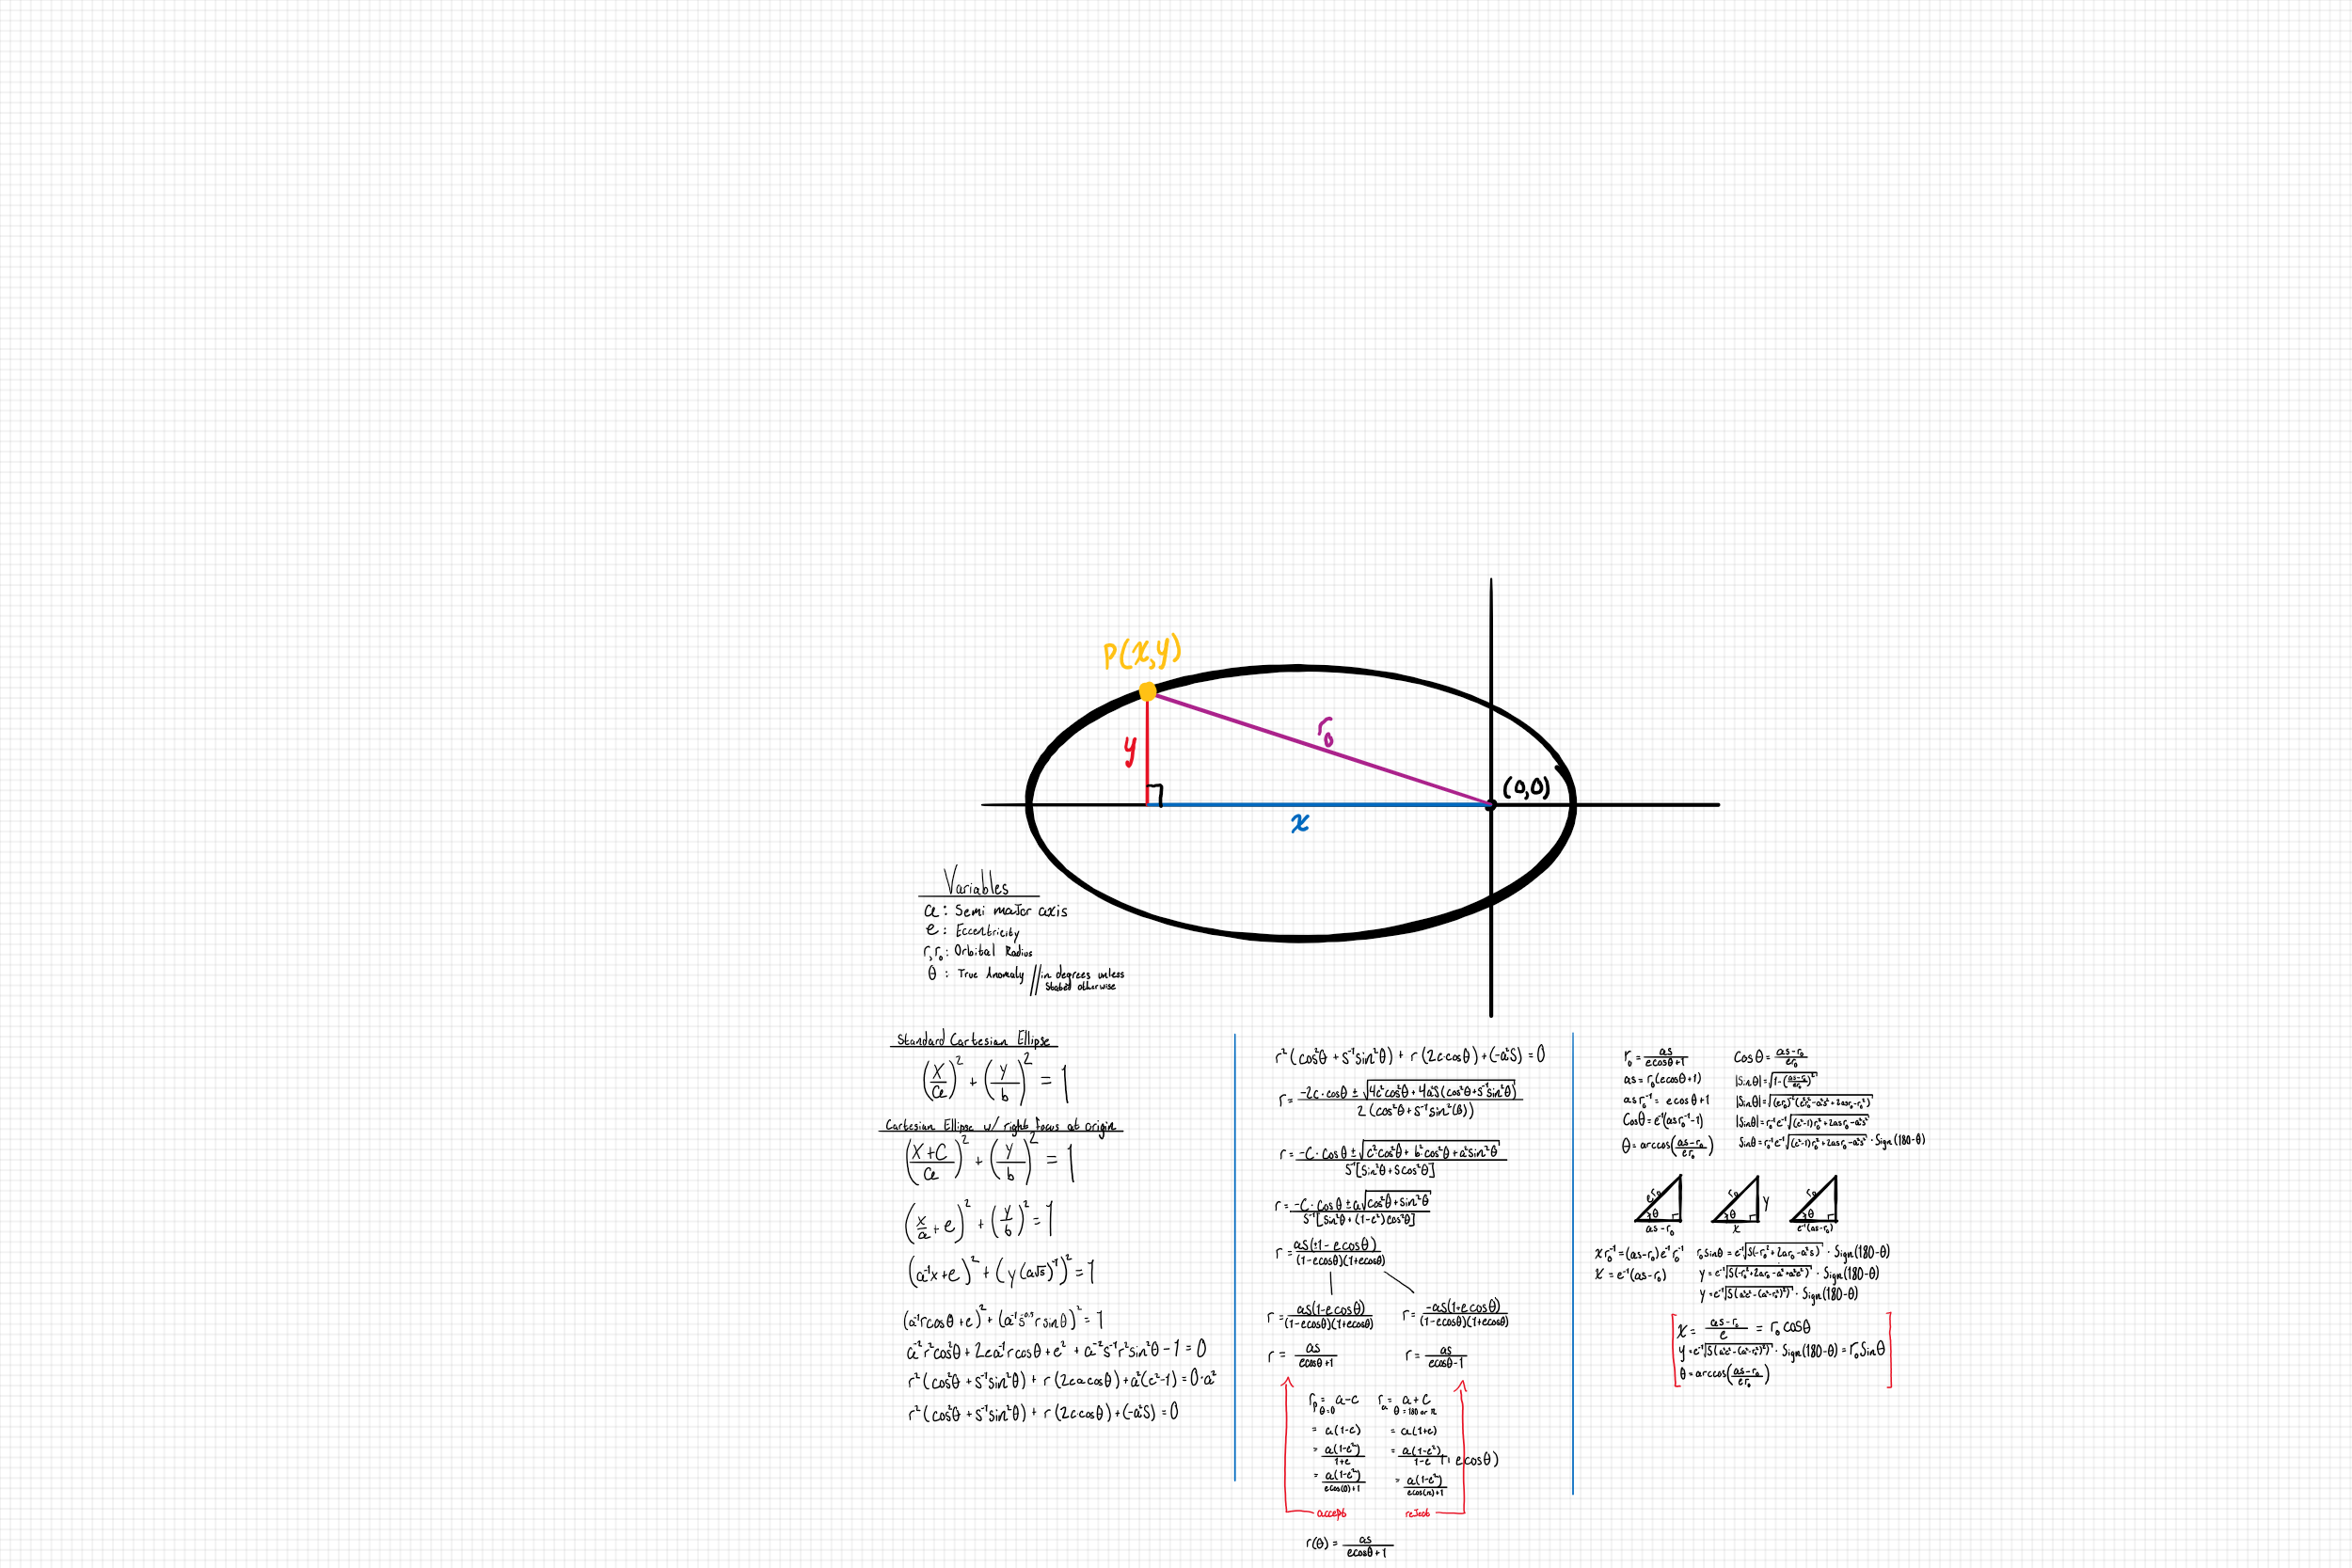 P(x,y)
r₀
y
(0,0)
x
Variables
a : Semi major axis
e : Eccentricity
r, r₀ : Orbital Radius
θ : True Anomaly // in degrees unless
stated otherwise
Standard Cartesian Ellipse
(x/a)² + (y/b)² = 1
Cartesian Ellipse w/ right focus at origin
(x+c/a)² + (y/b)² = 1
(x/a + e)² + (y/b)² = 1
(a⁻¹x+e)² + (y(a√s)⁻¹)² = 1
(a⁻¹rcosθ+e)² + (a⁻¹s⁻⁰·⁵rsinθ)² = 1
a⁻²r²cos²θ + 2ea⁻¹rcosθ + e² + a⁻²s⁻¹r²sin²θ - 1 = 0
r²(cos²θ + s⁻¹sin²θ) + r(2eacosθ) + a²(e²-1) = 0·a²
r²(cos²θ + s⁻¹sin²θ) + r(2c·cosθ) + (-a²s) = 0
r²(cos²θ + s⁻¹sin²θ) + r(2c·cosθ) + (-a²s) = 0
r = -2c·cosθ ± √(4c²cos²θ + 4a²s(cos²θ+s⁻¹sin²θ)) / 2(cos²θ + s⁻¹sin²(θ))
r = -c·cosθ ± √(c²cos²θ + b²cos²θ + a²sin²θ) / s⁻¹[sin²θ + s cos²θ]
r = -c·cosθ ± a√(cos²θ + sin²θ) / s⁻¹[sin²θ + (1-e²)cos²θ]
r = as(±1 - ecosθ) / (1-ecosθ)(1+ecosθ)
r = as(1-ecosθ) / (1-ecosθ)(1+ecosθ)
r = -as(1+ecosθ) / (1-ecosθ)(1+ecosθ)
r = as / ecosθ+1
r = as / ecosθ-1
r_p θ=0 = a-c
r_a θ=180 or π = a+c
= a(1-e)
= a(1+e)
= a(1-e²) / 1+e
= a(1-e²) / 1-e
ecosθ)
= a(1-e²) / ecos(0)+1
= a(1-e²) / ecos(π)+1
accept
reject
r(θ) = as / ecosθ+1
r₀ = as / ecosθ+1
as = r₀(ecosθ+1)
asr₀⁻¹ = ecosθ+1
cosθ = e⁻¹(asr₀⁻¹-1)
θ = arccos(as-r₀ / er₀)
cosθ = as-r₀ / er₀
|sinθ| = √(1-(as-r₀ / er₀)²)
|sinθ| = √((er₀)⁻²(e²r₀²-a²s²+2asr₀-r₀²))
|sinθ| = r₀⁻¹e⁻¹√((e²-1)r₀²+2asr₀-a²s²)
sinθ = r₀⁻¹e⁻¹√((e²-1)r₀²+2asr₀-a²s²) · sign(180-θ)
er₀
θ
as-r₀
r₀
θ
y
x
r₀
θ
e⁻¹(as-r₀)
xr₀⁻¹ = (as-r₀)e⁻¹r₀⁻¹
x = e⁻¹(as-r₀)
r₀sinθ = e⁻¹√(s(-r₀²+2ar₀-a²s)) · sign(180-θ)
y = e⁻¹√(s(-r₀²+2ar₀-a²+a²e²)) · sign(180-θ)
y = e⁻¹√(s(a²e²-(a-r₀)²)) · sign(180-θ)
x = as-r₀ / e = r₀cosθ
y = e⁻¹√(s(a²e²-(a-r₀)²)) · sign(180-θ) = r₀sinθ
θ = arccos(as-r₀ / er₀)